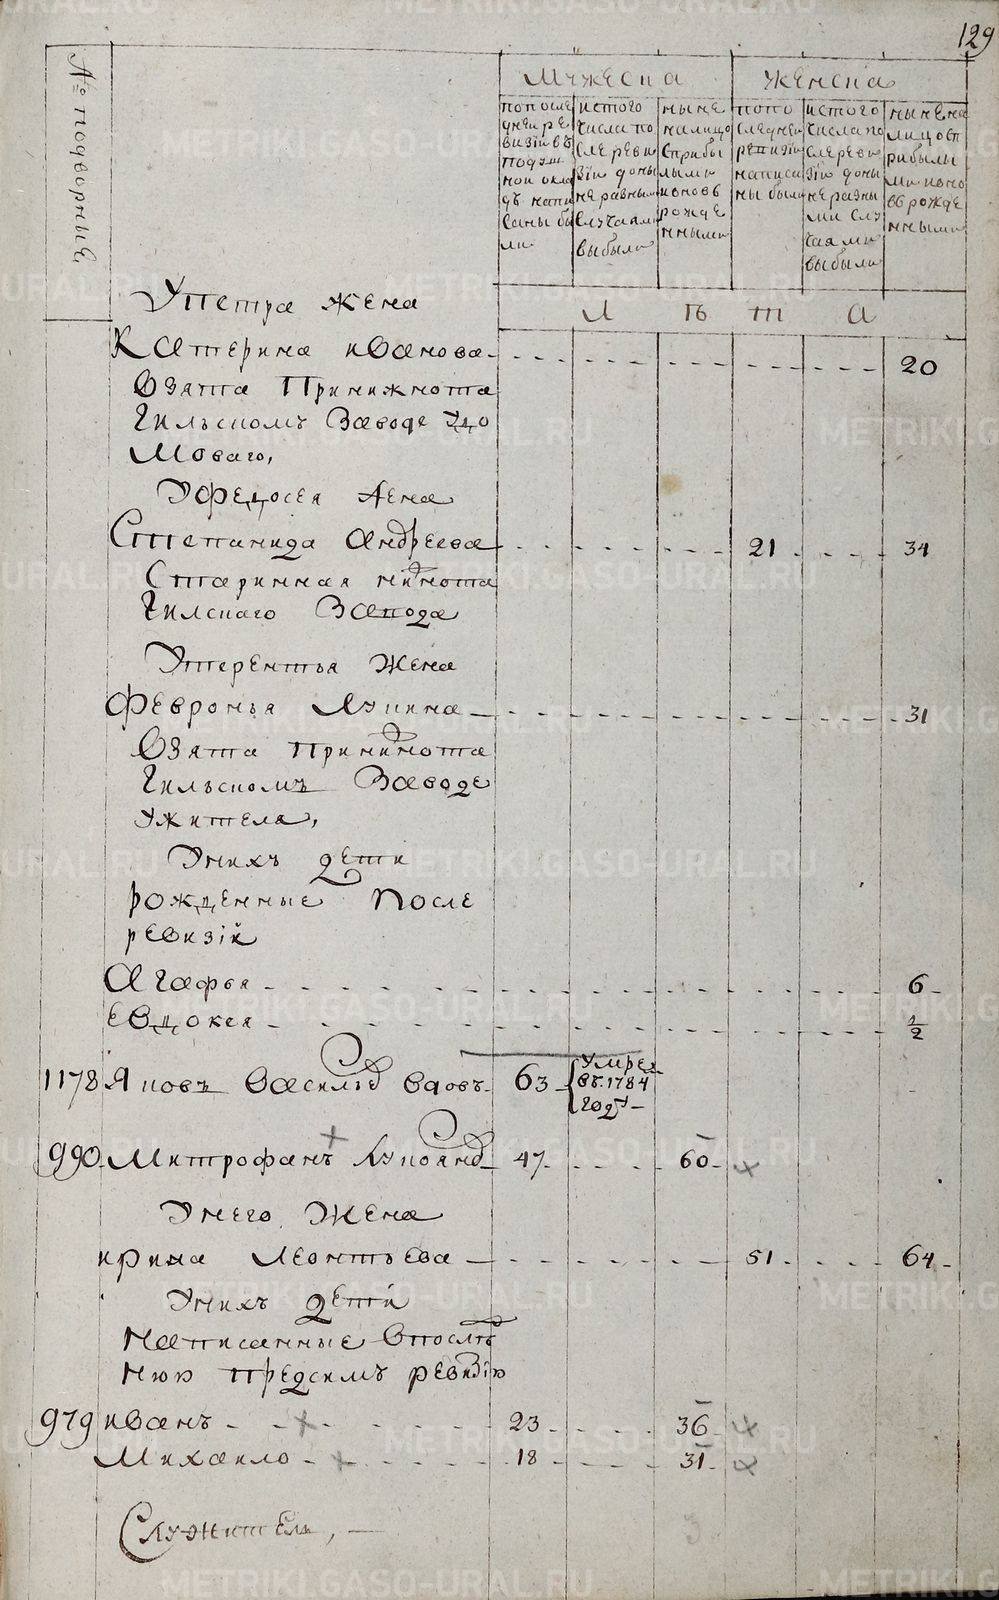 129
№ подворные
мужеска
женска
по после
дней ре
визiи въ
подуш
ной окла
дъ напи
саны бы
ли
истого
числа по
сле реви
зiи до ны
не разным
случаями
выбыло
ныне
налицо
сприбы
лыми
иновь
рожде
нными
попо
следней
ревизiи
написа
ны были
истого
числа по
сле реви
зiи доны
не разны
ми слу
чаями
выбыли
ныне на
лицо сп
рибылы
ми ино
вь рожде
нными
л ѣ т а
Упетра жена
Катерина иванова 20
взята Принижнота
гильскомъ Заводе удо
моваго,
Уфедосея жена
Степанида андреева 21 34
Старинная нижнота
гилскаго Завода
Утерентья жена
Февронья Лупина 31
взята Принижнота
гильскомъ Заводе
ужителя,
Унихъ дети
рожденные после
ревизiи
агафья 6
евдокея 1/2
1178 Яковъ васильевъ вдовъ 63 Умре
въ 1784
году
990 Митрофанъ Лупояновъ 47 60
Унего жена
ирина Леонтьева 51 64
Унихъ дети
написанные впослѣ
нюю предсимъ ревизiю
979 иванъ 23 36
Михаило 18 31
Служитель,
METRIKI.GASO-URAL.RU